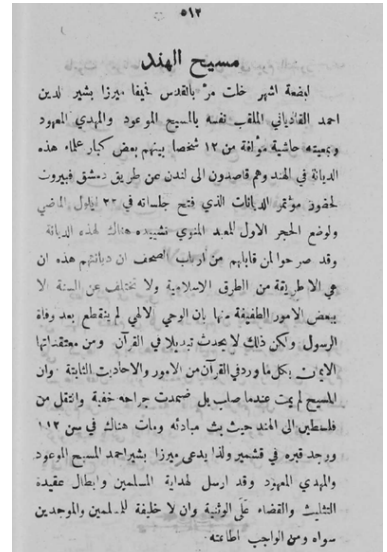 ٥١٣
مسيح الهند
لبضعة اشهر خلت مرّ بالقدس ميرزا بشير الدين
احمد القادياني الملقب نفسه بالمسيح الموعود والمهدي المعهود
وبمعيته حاشية مؤلفة من ١٢ شخصا بينهم بعض كبار علماء هذه
الديانة في الهند وهم قاصدون الى لندن عن طريق دمشق فبيروت
لحضور مؤتمر الديانات الذي فتح جلساته في ٢٢ ايلول الماضي
ولوضع الحجر الاول للمعبد المنوي تشييده هناك لهذه الديانة
وقد صرحوا لمن قابلهم من ارباب الصحف ان ديانتهم هذه ان
هي الا طريقة من الطرق الاسلامية ولا تختلف عن السنة الا
ببعض الامور الطفيفة منها بان الوحي الالهي لم ينقطع بعد وفاة
الرسول ولكن ذلك لا يحدث تبديلا في القرآن ومن معتقداتها
الايمان بكل ما ورد في القرآن من الامور والاحاديث الثابتة وان
المسيح لم يمت عندما صلب بل ضمدت جراحه خفية وانتقل من
فلسطين الى الهند حيث بث مبادئه ومات هناك في سن ١١٣
ووجد قبره في قشمير ولذا يدعى ميرزا بشير احمد المسيح الموعود
والمهدي المعهود وقد ارسل لهداية المسلمين وابطال عقيدة
التثليث والقضاء عَلَى الوثنية وان لا خليفة للمسلمين والموحدين
سواه ومن الواجب اطاعته